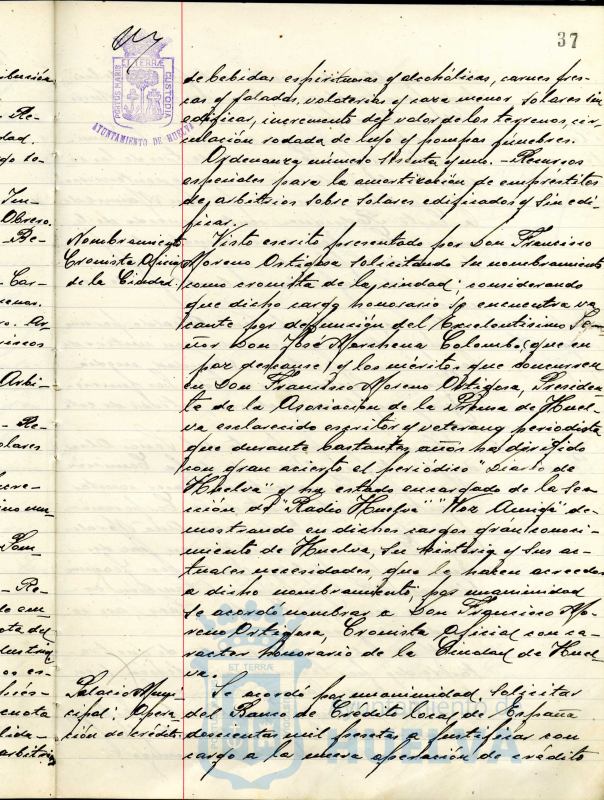 37
PORTUS MARIS ET TERRÆ CUSTODIA
AYUNTAMIENTO DE HUELVA
de bebidas espirituosas y alcohólicas, carnes fres-
cas y saladas, volaterias y caza menor, solares sin
edificar, incremento del valor de los terrenos, cir-
culación rodada de lujo y pompas fúnebres.
Ordenanza número sesenta y uno. - Recursos
especiales para la amortización de empréstitos
de arbitrios sobre solares edificados y sin edi-
ficar.
Nombramiento
Cronista Oficial
de la Ciudad.
Visto escrito presentado por Don Francisco
Moreno Ortigosa solicitando su nombramiento
como cronista de la ciudad; considerando
que dicho cargo honorario se encuentra va
cante por defunción del Excelentísimo Se-
ñor Don José Marchena Colombo (que en
paz descanse) y los méritos que concurren
en Don Francisco Moreno Ortigosa, Presiden-
te de la Asociación de la Prensa de Huel-
va esclarecido escritor y veterano periodista
que durante bastantes años ha dirigido
con gran acierto el periódico "Diario de
Huelva" y ha estado encargado de la Sec
ción de "Radio Huelva" "Voz Amiga" de-
mostrando en dichos cargos gran conoci-
miento de Huelva, su historia y sus ac-
tuales necesidades, que le hacen acreedor
a dicho nombramiento, por unanimidad
se acordó nombrar a Don Francisco Mo-
reno Ortigosa, Cronista Oficial con ca-
racter honorario de la Ciudad de Huel-
va.
Palacio Muni
cipal: Opera-
ción de crédito.
Se acordó por unanimidad, solicitar
del Banco de Crédito local de España
doscientas mil pesetas a justificar con
cargo a la nueva operación de crédito
Ayuntamiento de
HUELVA